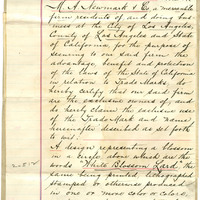 M. A. Newmark & Co, a mercantile
firm residents of and doing bus-
iness at the City of Los Angeles
County of Los Angeles and State
of California, for the purpose of
securing to our said firm the
advantage, benefit and protection
of the Laws of the State of California
in relation to Trade Marks, do
hereby certify that our said firm
are the exclusive owners of, and
do hereby claim the exclusive use
of the Trade Mark and name
hereinafter described as set forth
to wit.
A design representing a blossom
in a circle above which are the
words "White Blossom Lard" the
same being printed, lithographed
stamped or otherwise produced
in one or more color or colors